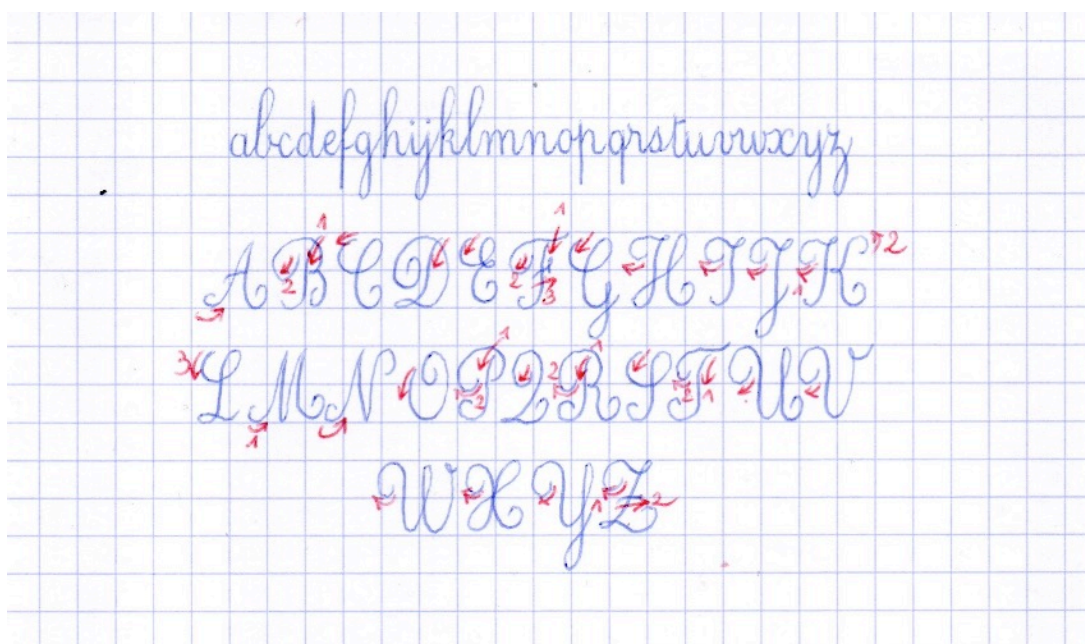 abcdefghijklmnopqrstuvwxyz
ABCDEFGHIJK
LMNOPQRSTUV
WXYZ